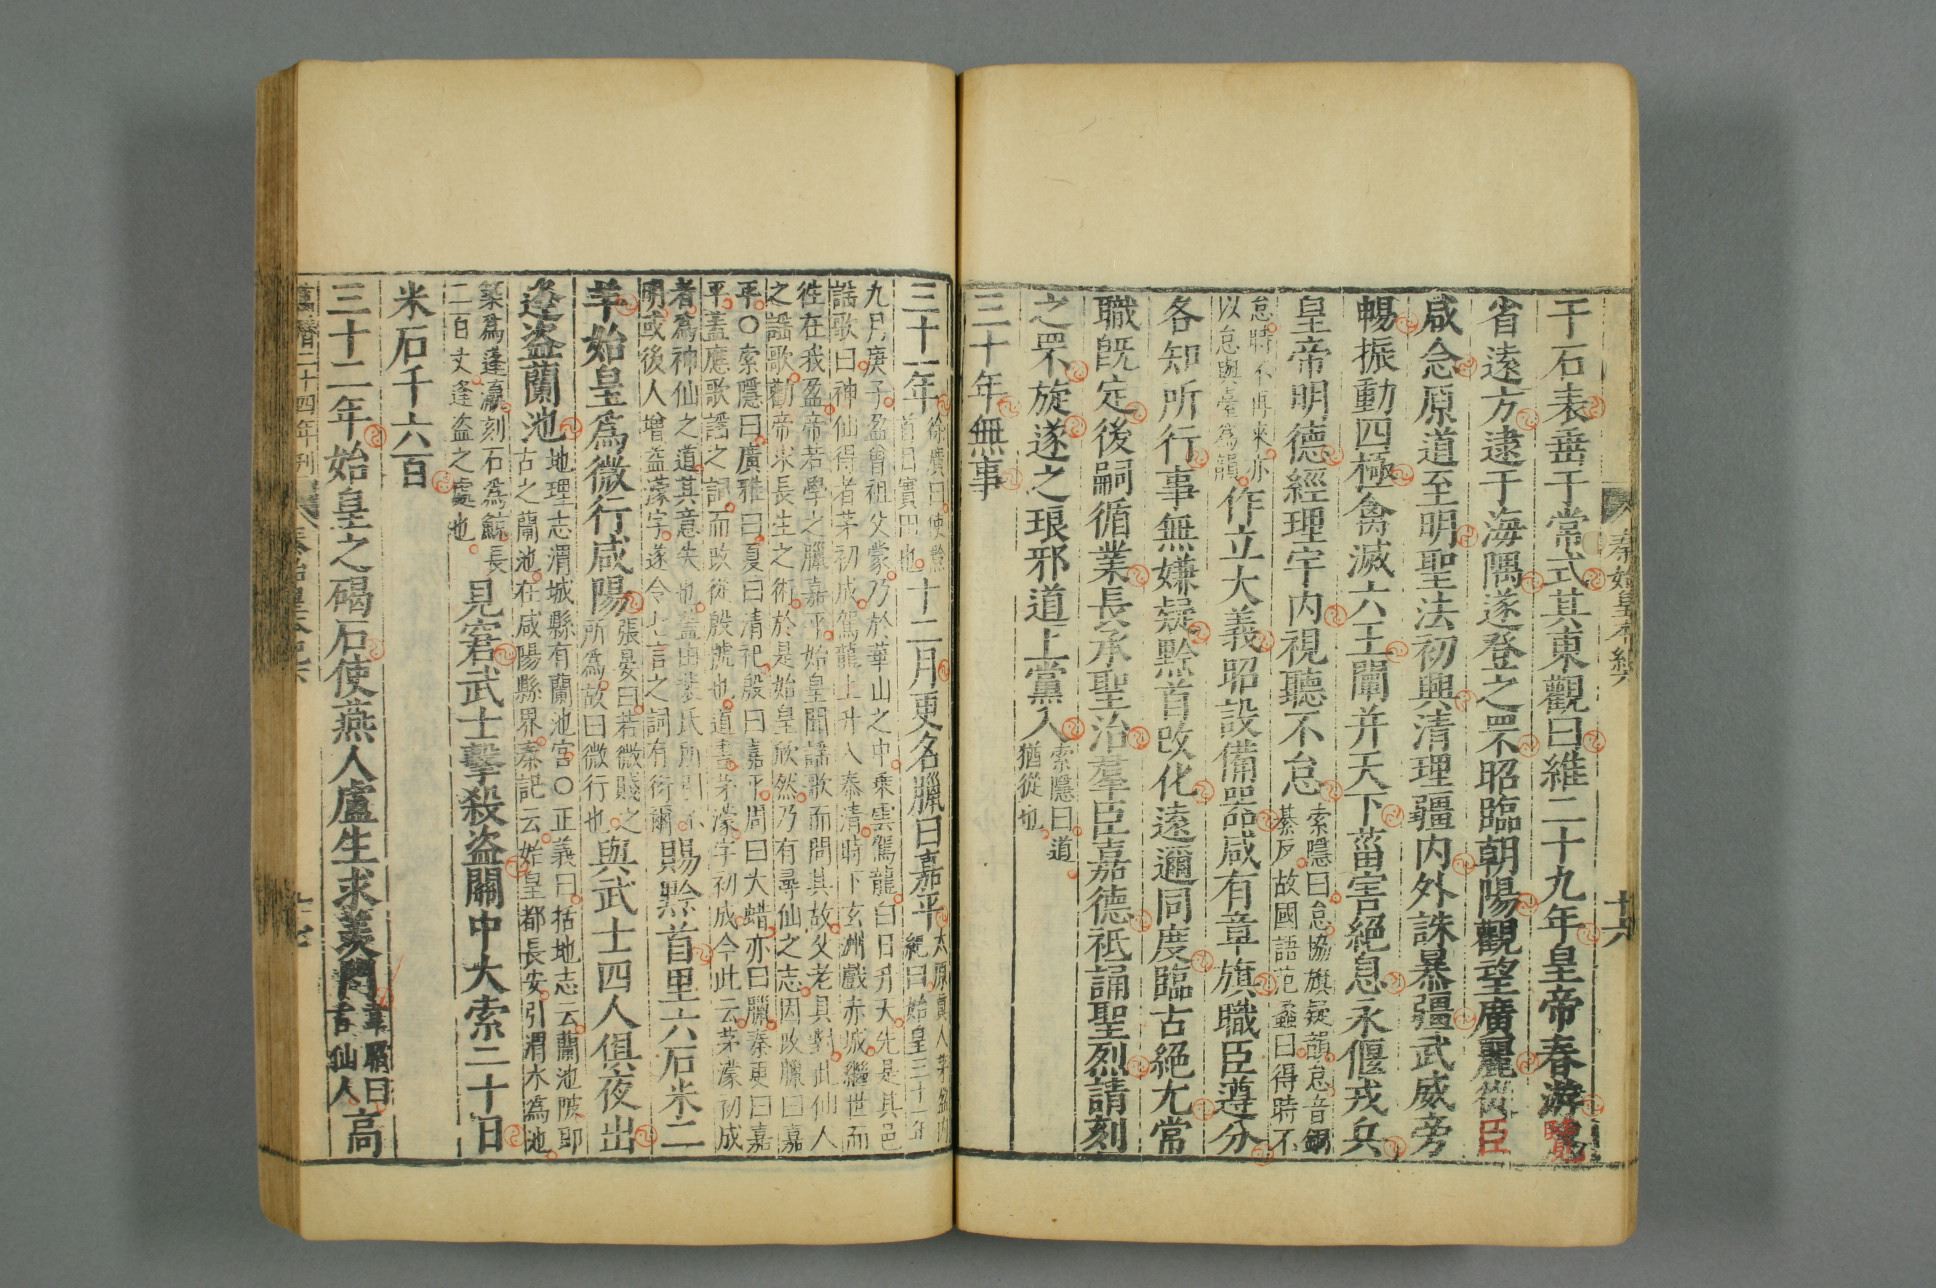 秦始皇本紀六
十六
于石表垂于常式其東觀曰維二十九年皇帝春游覽
省遠方逮于海隅遂登之罘昭臨朝陽觀望廣麗從臣
咸念原道至明聖法初興清理疆內外誅暴彊武威旁
暢振動四極禽滅六王闡并天下菑害絕息永偃戎兵
皇帝明德經理宇內視聽不怠索隱曰怠協旗疑韻怠音銅
綦反故國語范蠡曰得時不
怠時不再來亦
以怠與臺為韻作立大義昭設備器咸有章旗職臣遵分
各知所行事無嫌疑黔首改化遠邇同度臨古絕尤常
職旣定後嗣循業長承聖治羣臣嘉德祗誦聖烈請刻
之罘旋遂之琅邪道上黨入索隱曰道
猶從也
三十年無事
三十一年徐廣曰使黔
首自實田也十二月更名臘曰嘉平太原眞人茅盈內
紀曰始皇三十一年
九月庚子盈曾祖父蒙乃於華山之中乘雲駕龍白日升天先是其邑
謡歌曰神仙得者茅初成駕龍上升入泰清時下玄洲戲赤城繼世而
徃在我盈帝若學之臘嘉平始皇聞謡歌而問其故父老具對此仙人
之謡歌勸帝求長生之術於是始皇欣然乃有尋仙之志因改臘曰嘉
平○索隱曰廣雅曰夏曰清祀殷曰嘉平周曰大蜡亦曰臘秦更曰嘉
平蓋應歌謡之詞而改從殷號也道書茅濛字初成今此云茅濛初成
者為神仙之道其意失也蓋由裴氏所引不
明或後人增益濛字遂令此言之詞有衍爾賜黔首里六石米二
羊始皇爲微行咸陽張晏曰若微賤之
所為故曰微行也與武士四人俱夜出
逢盜蘭池地理志渭城縣有蘭池宮○正義曰括地志云蘭池陂即
古之蘭池在咸陽縣界秦記云始皇都長安引渭水為池
築為蓬瀛刻石為鯨長
二百丈逢盜之處也見窘武士擊殺盜關中大索二十日
米石千六百
三十二年始皇之碣石使燕人盧生求羨門韋昭曰
古仙人高
萬曆二十四年刊
秦始皇本紀六
十七